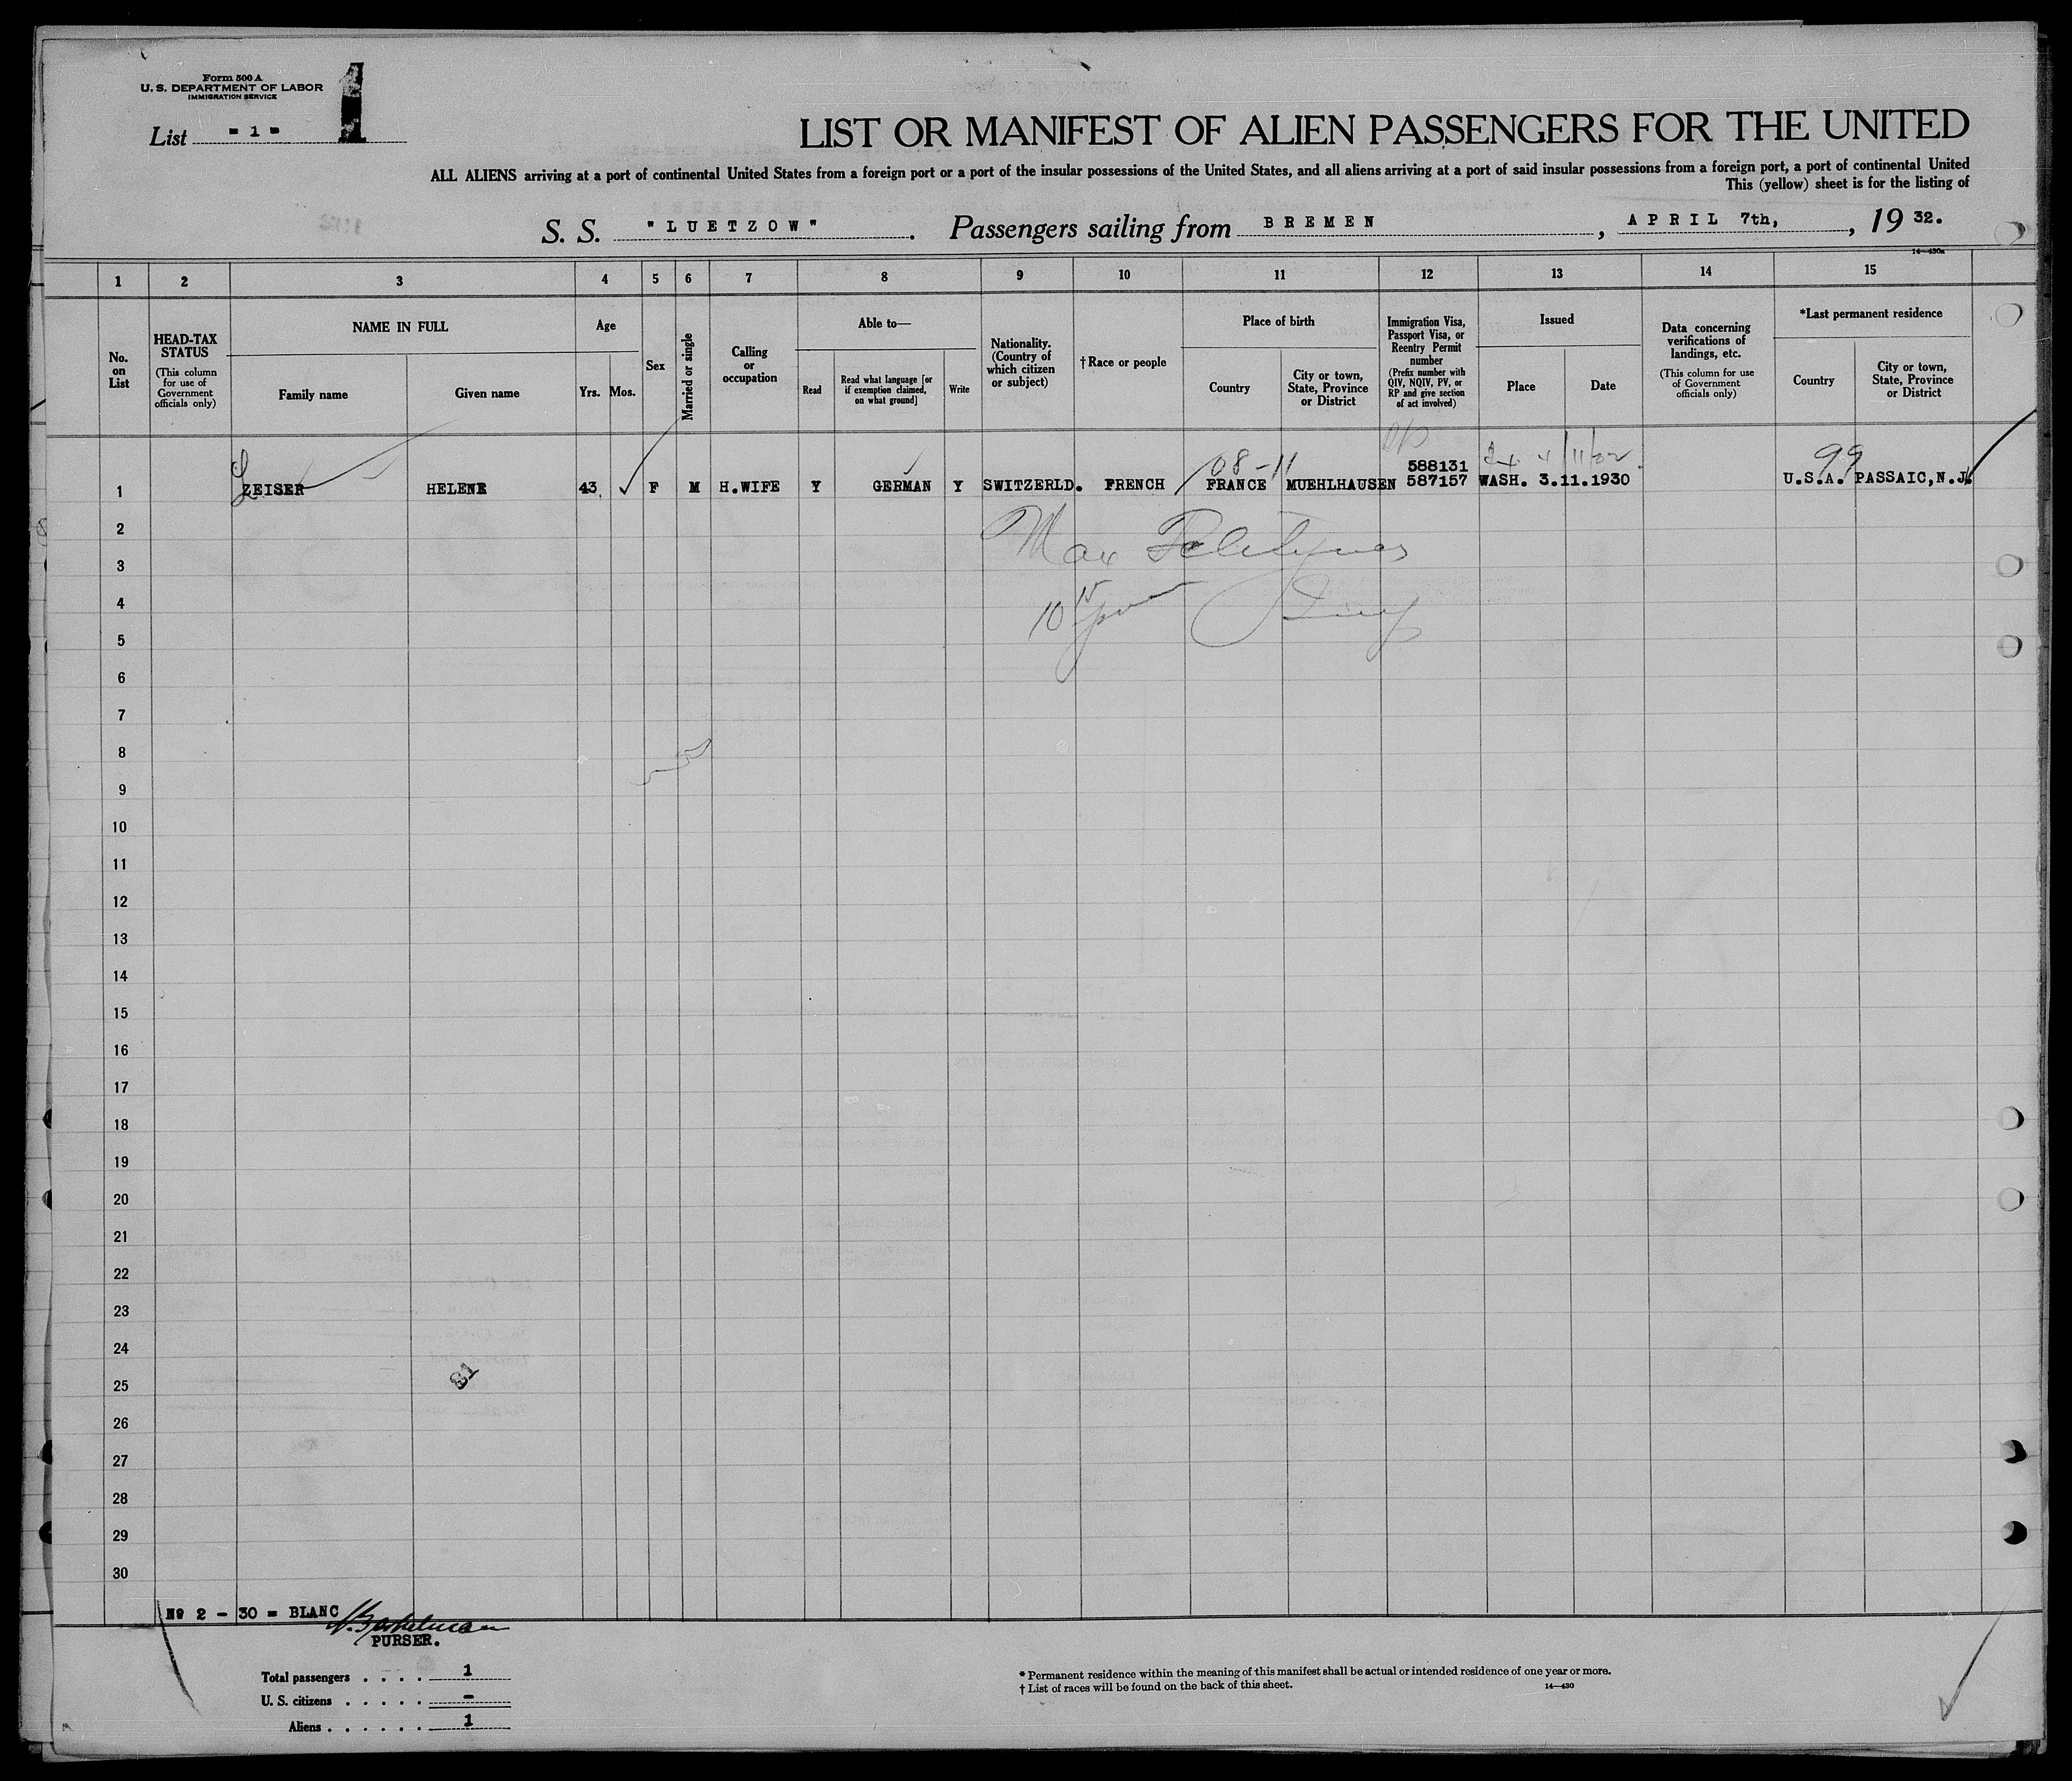 Form 500 A
U. S. DEPARTMENT OF LABOR
IMMIGRATION SERVICE
1
List = 1 =
LIST OR MANIFEST OF ALIEN PASSENGERS FOR THE UNITED
ALL ALIENS arriving at a port of continental United States from a foreign port or a port of the insular possessions of the United States, and all aliens arriving at a port of said insular possessions from a foreign port, a port of continental United
This (yellow) sheet is for the listing of
S. S. "LUETZOW". Passengers sailing from BREMEN, APRIL 7th, , 1932.
14—430a
1 2 3 4 5 6 7 8 9 10 11 12 13 14 15
No. on List
HEAD-TAX STATUS
(This column for use of Government officials only)
NAME IN FULL
Family name Given name
Age
Yrs. Mos.
Sex
Married or single
Calling or occupation
Able to—
Read
Read what language [or if exemption claimed, on what ground]
Write
Nationality. (Country of which citizen or subject)
†Race or people
Place of birth
Country
City or town, State, Province or District
Immigration Visa, Passport Visa, or Reentry Permit number
(Prefix number with QIV, NQIV, PV, or RP and give section of act involved)
Issued
Place Date
Data concerning verifications of landings, etc.
(This column for use of Government officials only)
*Last permanent residence
Country
City or town, State, Province or District
08-11
99
588131
1 ZEISER HELENE 43 F M H.WIFE Y GERMAN Y SWITZERLD. FRENCH FRANCE MUEHLHAUSEN 587157 WASH. 3.11.1930 U.S.A. PASSAIC,N.J.
2
Max
3
4
10
5
6
7
8
9
10
11
12
13
14
15
16
17
18
19
20
21
22
23
24
25
81
26
27
28
29
30
No 2 - 30 = BLANC
PURSER.
Total passengers . . . . 1
U. S. citizens . . . . . -
Aliens . . . . . . 1
* Permanent residence within the meaning of this manifest shall be actual or intended residence of one year or more.
† List of races will be found on the back of this sheet.
14—430